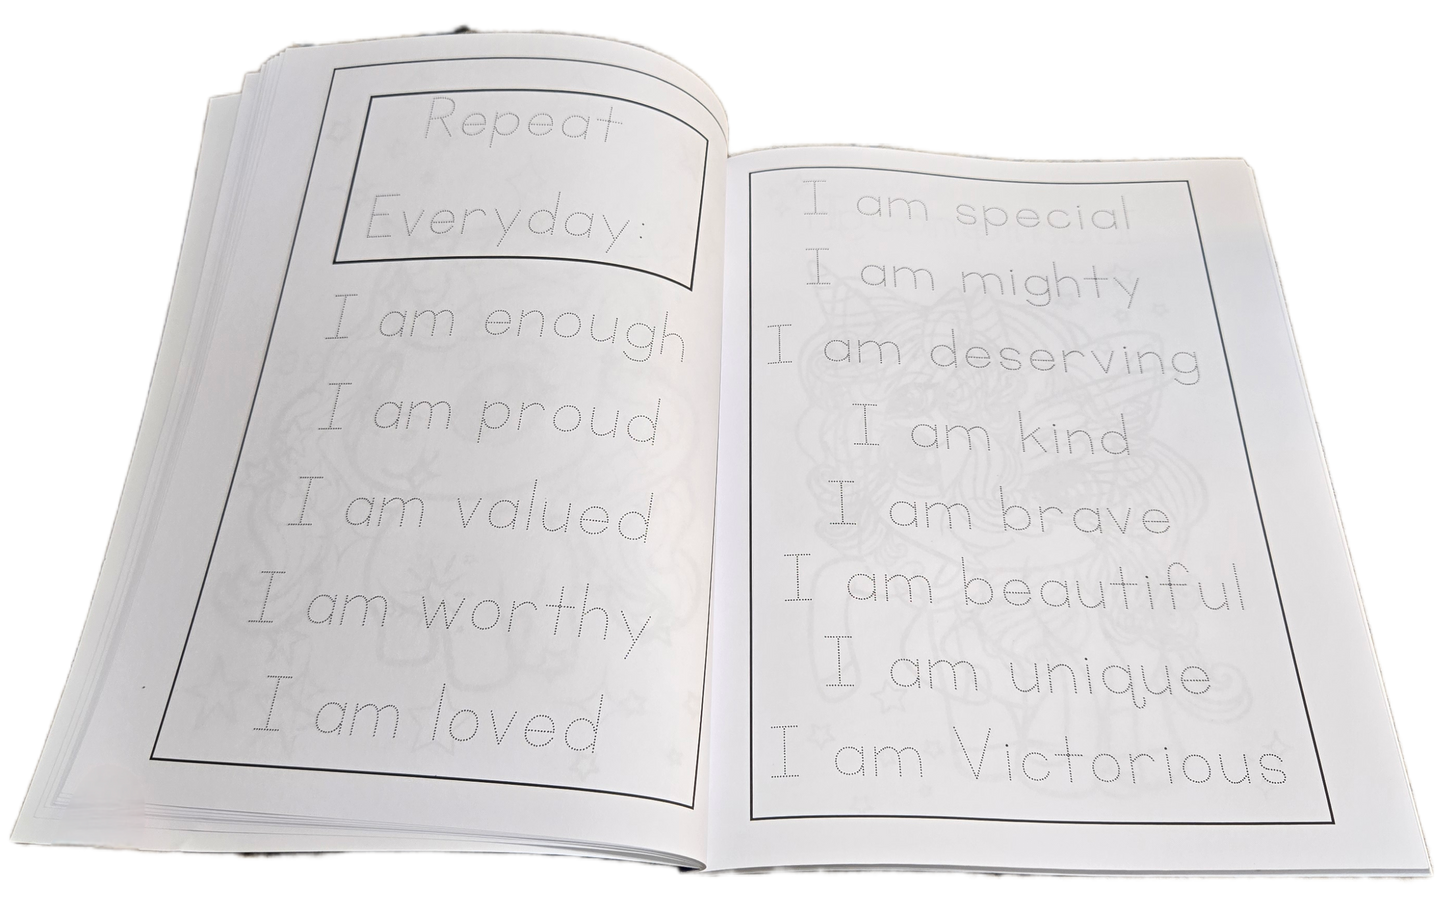 Repeat
Everyday:
I am enough
I am proud
I am valued
I am worthy
I am loved
I am special
I am mighty
I am deserving
I am kind
I am brave
I am beautiful
I am unique
I am Victorious